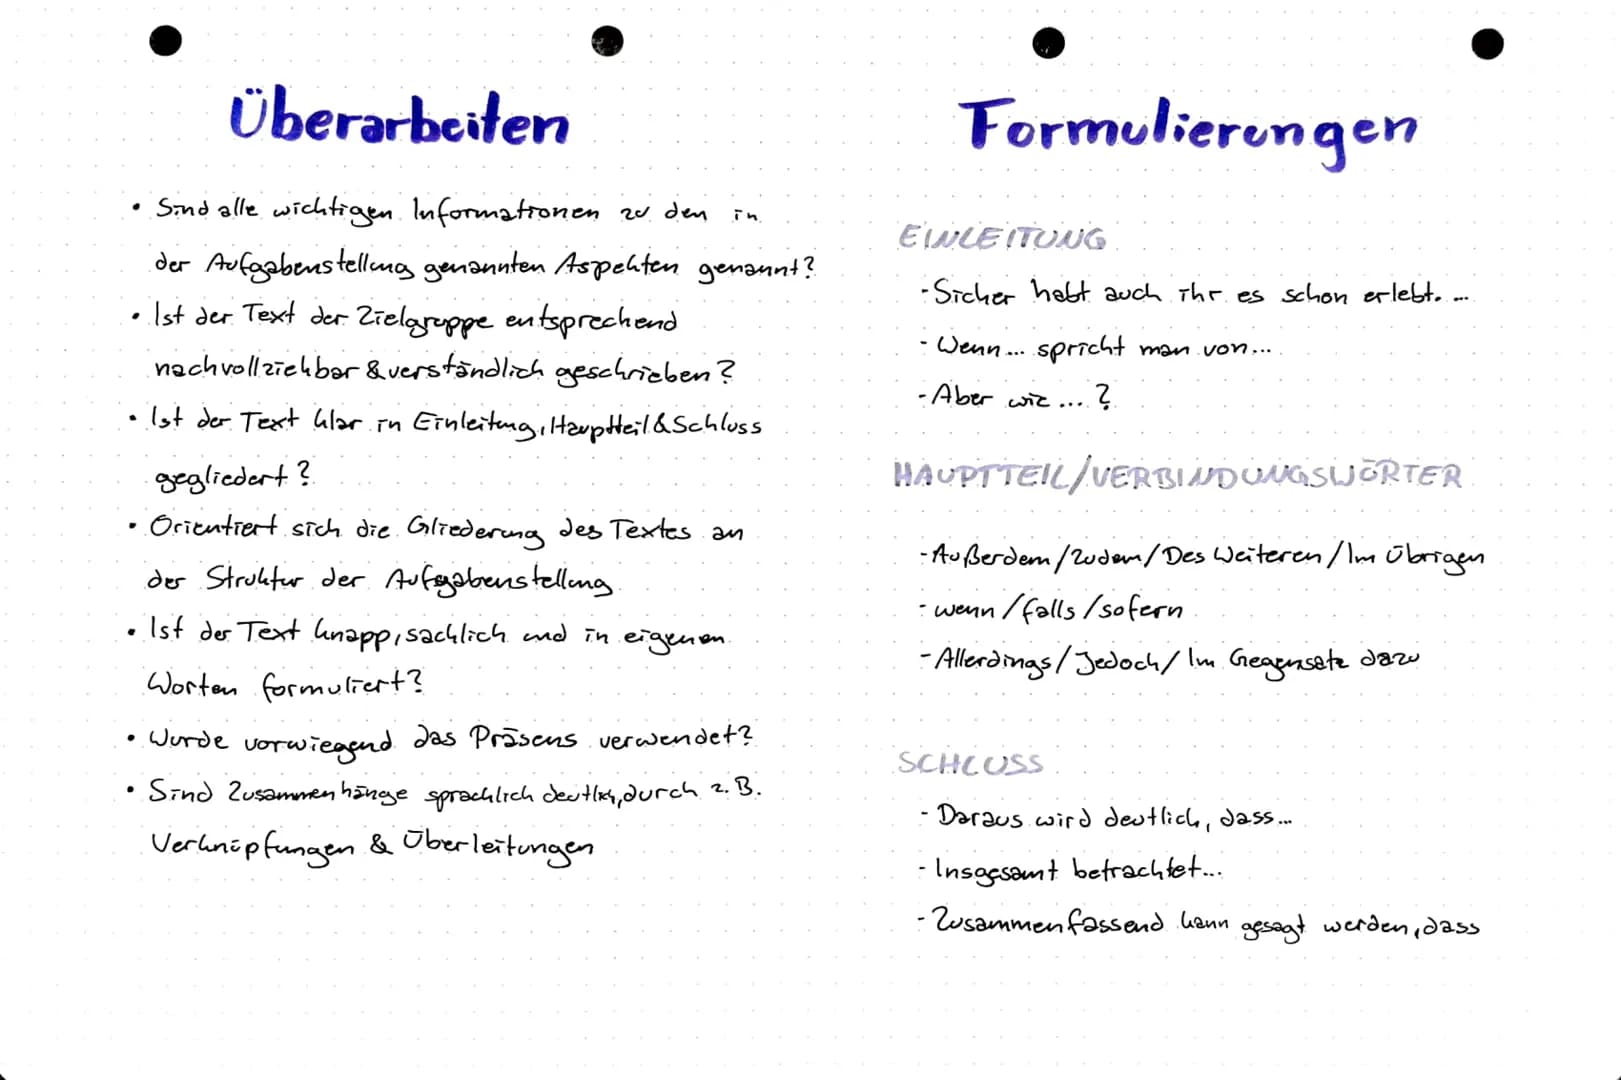 Überarbeiten
• Sind alle wichtigen Informationen zu den in
der Aufgabenstellung genannten Aspekten genannt?
• Ist der Text der Zielgruppe entsprechend
nachvollziehbar & verständlich geschrieben?
• Ist der Text klar in Einleitung, Hauptteil & Schluss
gegliedert?
• Orientiert sich die Gliederung des Textes an
der Struktur der Aufgabenstellung
• Ist der Text knapp, sachlich und in eigenen
Worten formuliert?
• Wurde vorwiegend das Präsens verwendet?
• Sind Zusammenhänge sprachlich deutlich, durch z. B.
Verknüpfungen & Überleitungen
Formulierungen
EINLEITUNG
- Sicher habt auch ihr es schon erlebt. ...
- Wenn ... spricht man von ...
- Aber wie ... ?
HAUPTTEIL/VERBINDUNGSWÖRTER
- Außerdem / Zudem / Des Weiteren / Im Übrigen
- wenn / falls / sofern
- Allerdings / Jedoch / Im Gegensatz dazu
SCHLUSS
- Daraus wird deutlich, dass ...
- Insgesamt betrachtet ...
- Zusammenfassend kann gesagt werden, dass